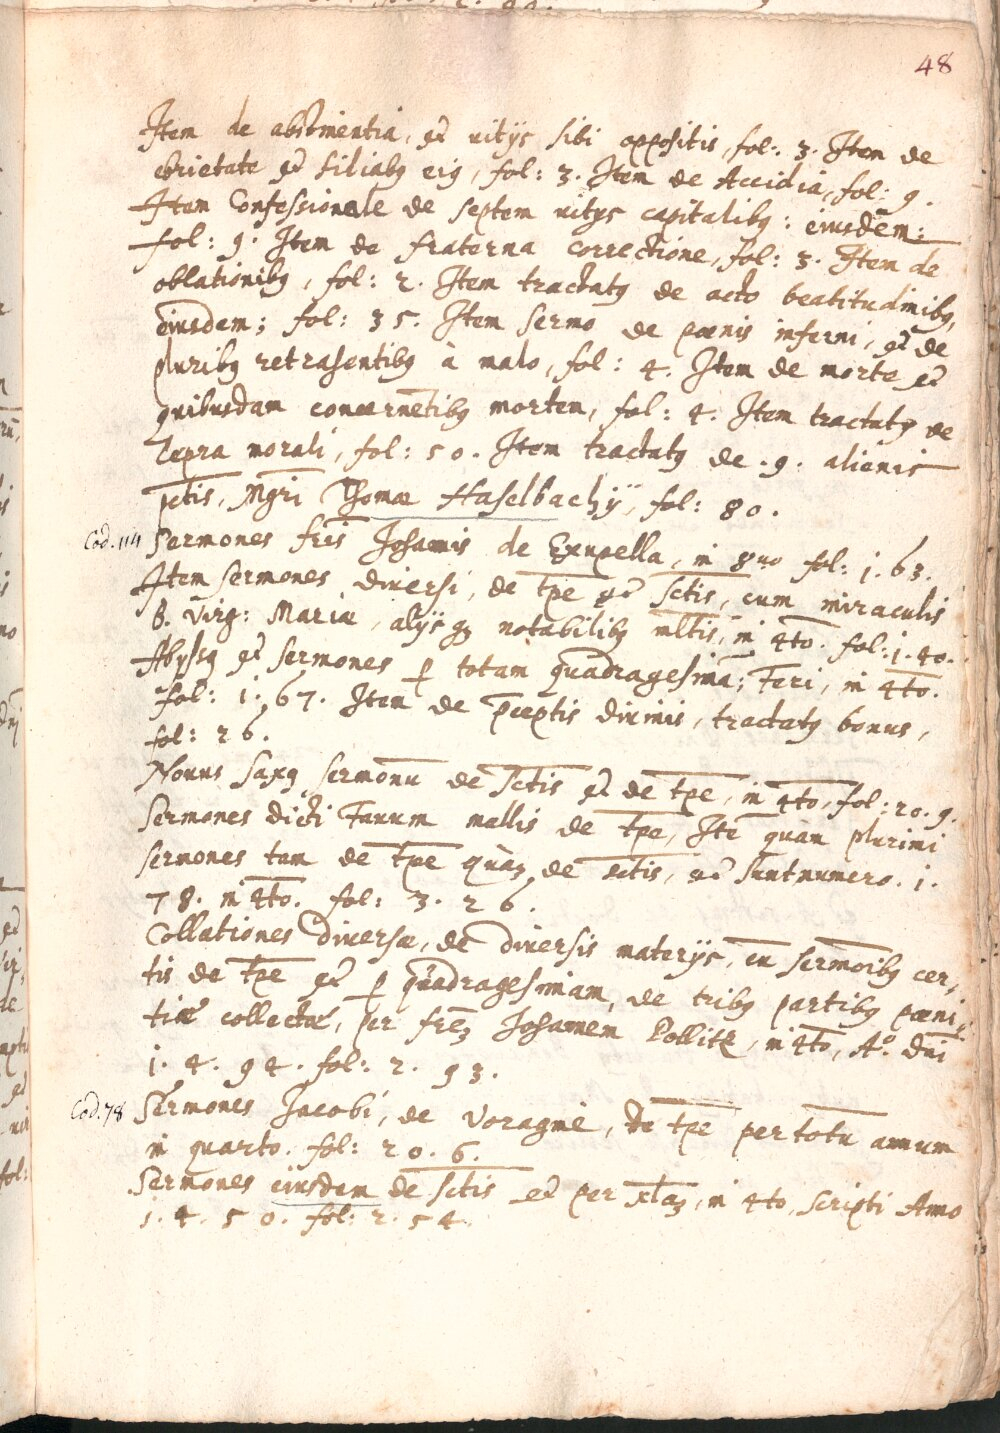 48
Item de abstinentia, et uitijs sibi oppositis, fol: 3. Item de
ebrietate et filiabꝫ eiꝫ, fol: 3. Item de Accidia, fol: 9.
Item Confessionale de septem uitijs capitalibꝫ: eiusdem:
fol: 9. Item de fraterna correctione, fol: 3. Item de
oblationibꝫ, fol: 2. Item tractatꝫ de acto beatitudinibꝫ,
eiusdem; fol: 35. Item sermo de pœnis inferni, et de
pluribꝫ retrahentibꝫ à malo, fol: 4. Item de morte et
quibusdam concernētibꝫ mortem, fol: 4. Item tractatꝫ de
lepra morali, fol: 50. Item tractatꝫ de .9. alienis
pctis, Mgri Thomæ Haselbachij, fol: 80.
Cod. 114 Sermones fris Johannis de in 8uo fol: 1.63.
Item sermones diversi, de tpe et sctis, cum miraculis
B. Virg: Mariæ, alijs qꝫ notabilibꝫ mltis, in 4to. fol: 1.40.
Abyssꝫ et sermones p totam quadragesimā; Feri, in 4to.
fol: 1.67. Item de pceptis diuinis, tractatꝫ bonus,
fol: 26.
Nouus Saxꝫ sermonū de sctis et de tpe, in 4to, fol: 20.9.
Sermones dicti Fauum mellis de tpe, Itē quam plurimi
sermones tam de tpe quàꝫ de sctis, et sunt numero. 1.
78. in 4to. fol: 3.26.
Collationes diuersæ, de diuersis materijs, cū sermoibꝫ cer,
tis de tpe et p quadragesimam, de tribꝫ partibꝫ pœni,
tiæ collectæ, per frēꝫ Johannem Pollitꝫ, in 4to, Aº. dni
1.4.94. fol: 2.93.
Cod. 78 Sermones Jacobi, de Voragine, de tpe per totū annum
in quarto. fol: 20.6.
Sermones eiusdem de sctis et per xlaꝫ, in 4to, scripti Anno
1.4.50. fol: 2.54.